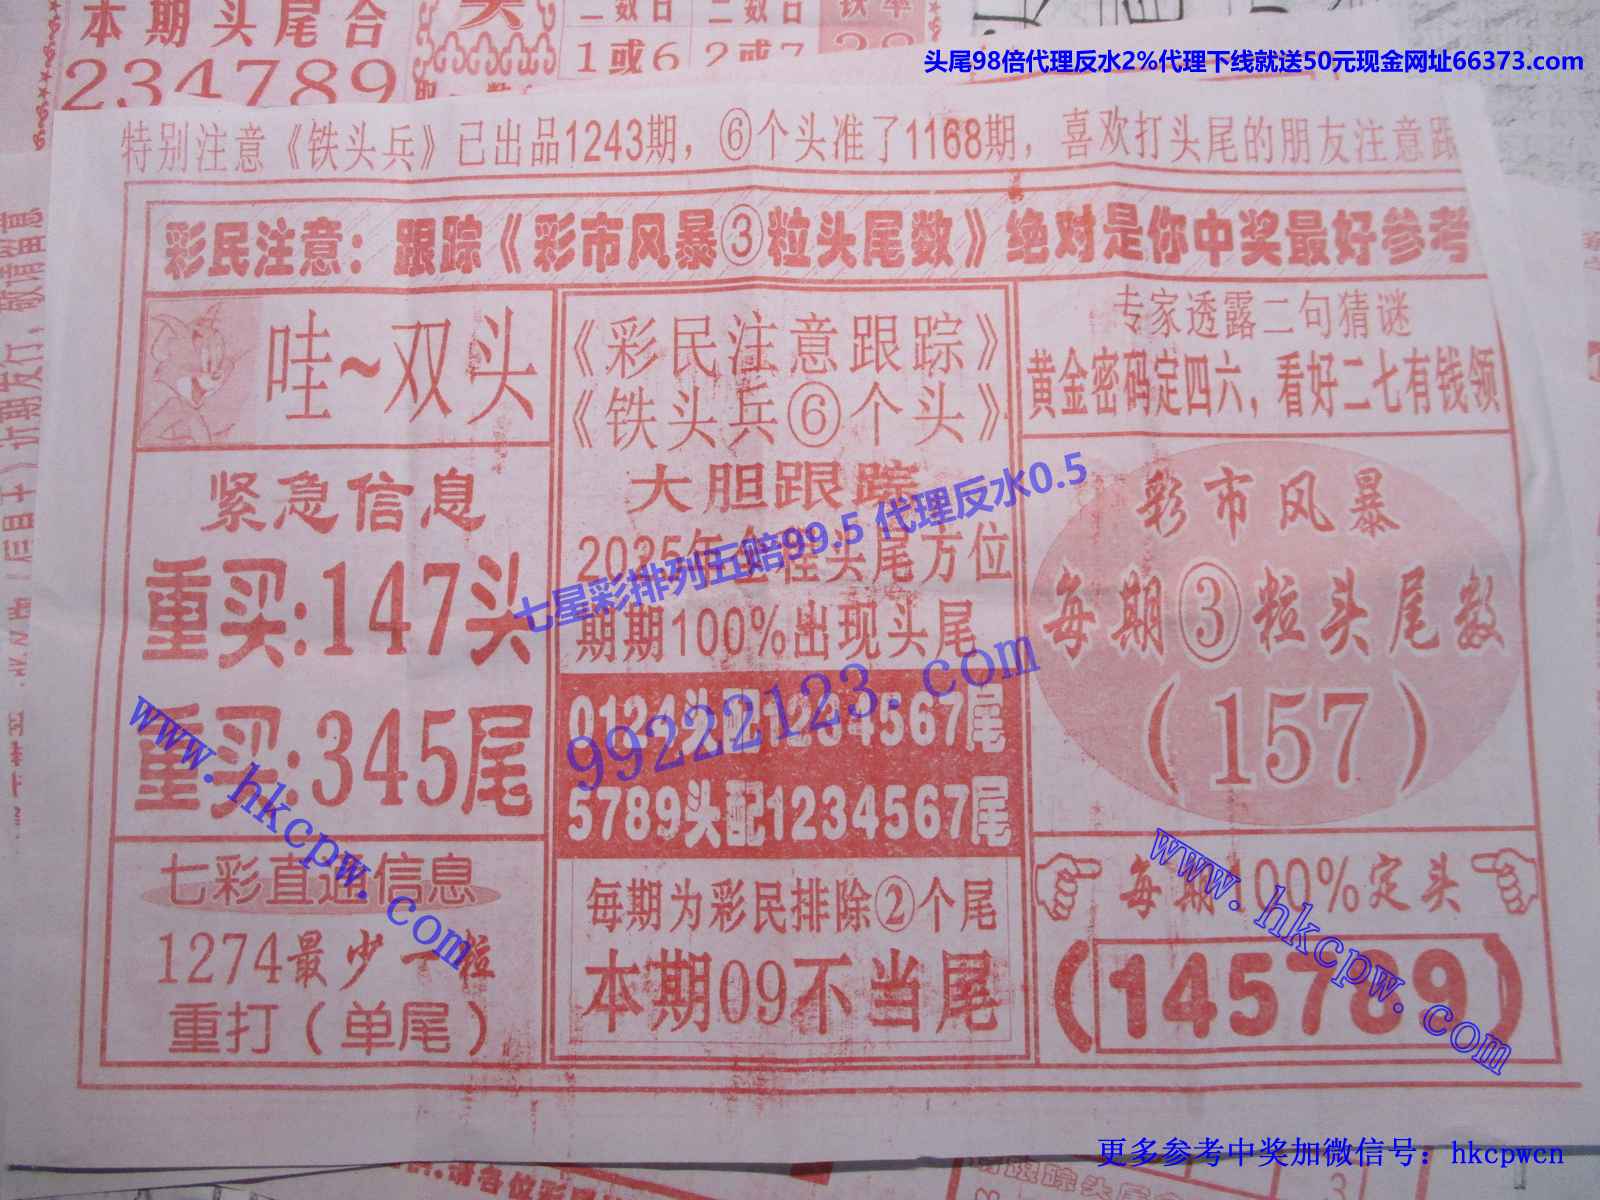 本期头尾合
234789
二数合 二数合
1或6 2或7
头尾98倍代理反水2%代理下线就送50元现金网址66373.com
特别注意《铁头兵》已出品1243期，⑥个头准了1168期，喜欢打头尾的朋友注意跟
彩民注意：跟踪《彩市风暴③粒头尾数》绝对是你中奖最好参考
哇~双头
紧急信息
重买:147头
重买:345尾
七彩直通信息
1274最少一粒
重打（单尾）
《彩民注意跟踪》
《铁头兵⑥个头》
大胆跟踪
头尾方位
期期100%出现头尾
0134头配1234567尾
5789头配1234567尾
每期为彩民排除②个尾
本期09不当尾
专家透露二句猜谜
黄金密码定四六，看好二七有钱领
彩市风暴
每期③粒头尾数
（157）
每期100%定头
（145789）
七星彩排列五赔99.5 代理反水0.5
99222123.com
www.hkcpw.com
www.hkcpw.com
更多参考中奖加微信号：hkcpwcn